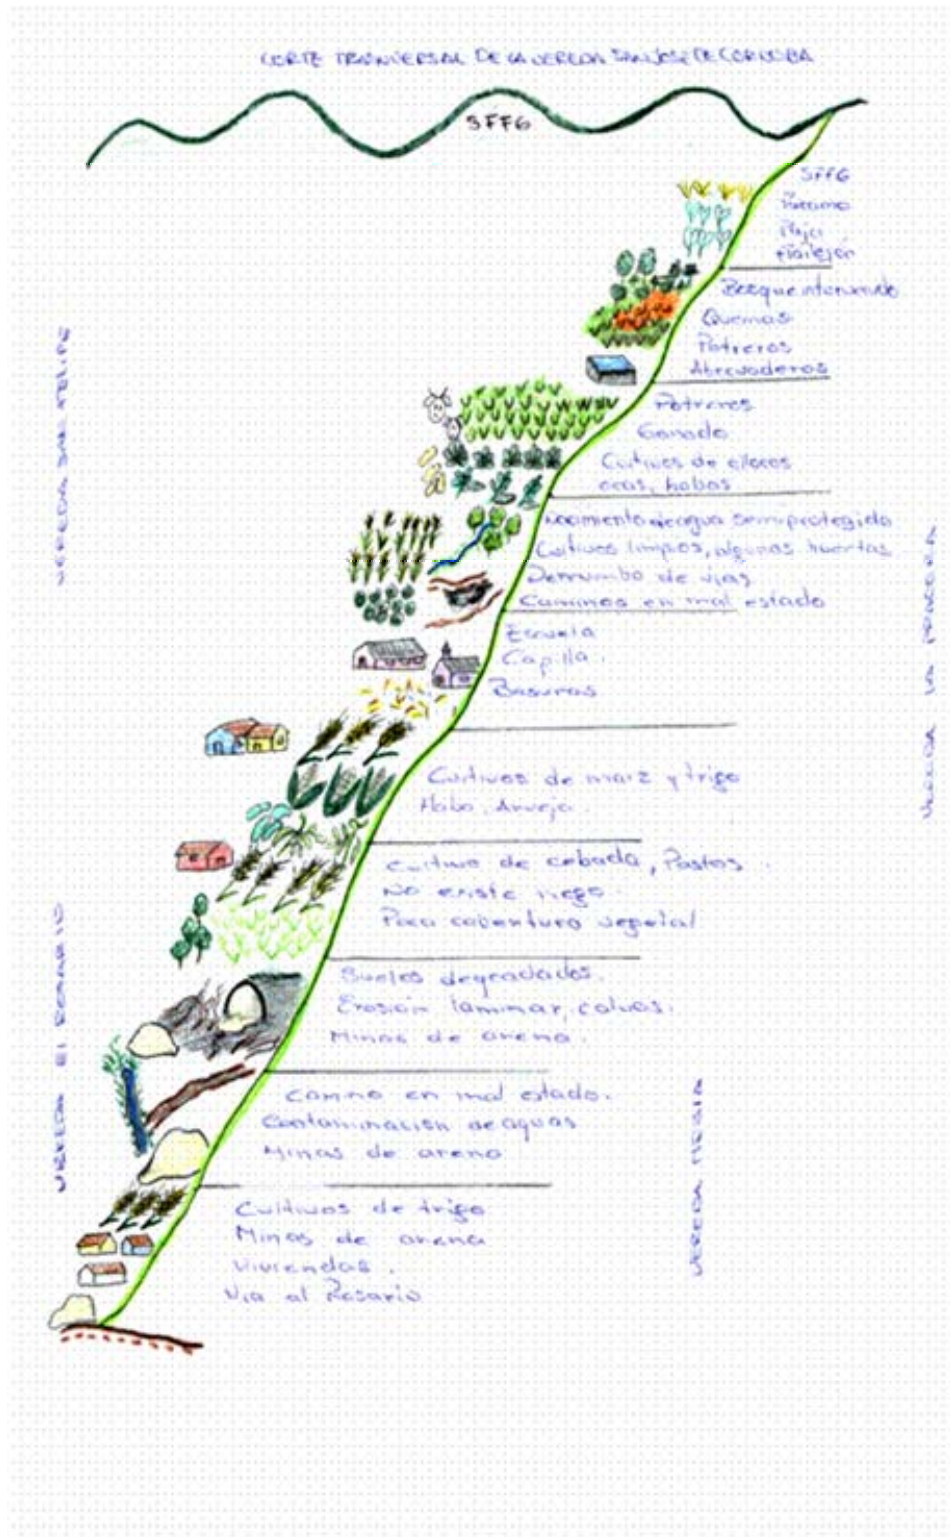 CORTE TRANVERSAL DE LA VEREDA SAN JOSE DE CORDOBA
SFFG
SFFG
Páramo
Paja
Frailejón
Bosque intervenido
Quemas
Potreros
Abrevaderos
Potreros
Ganado
Cultivos de ollocos
ocas, habas
Nacimiento de agua semiprotegido
Cultivos limpios, algunas huertas
Derrumbo de vias
Caminos en mal estado
Escuela
Capilla.
Basuras
Cultivos de maiz y trigo
Haba, Arveja.
Cultivo de cebada, Pastos.
No existe riego.
Poca cobertura vegetal
Suelos degradados.
Erosión laminar, calvas.
Minas de arena.
Camino en mal estado.
Contaminación de aguas
Minas de arena
Cultivos de trigo
Minas de arena
Viviendas.
Via al Rosario
VEREDA SAN FELIPE
VEREDA El ROSARIO
VEREDA LA PRADERA
VEREDA MEGIA